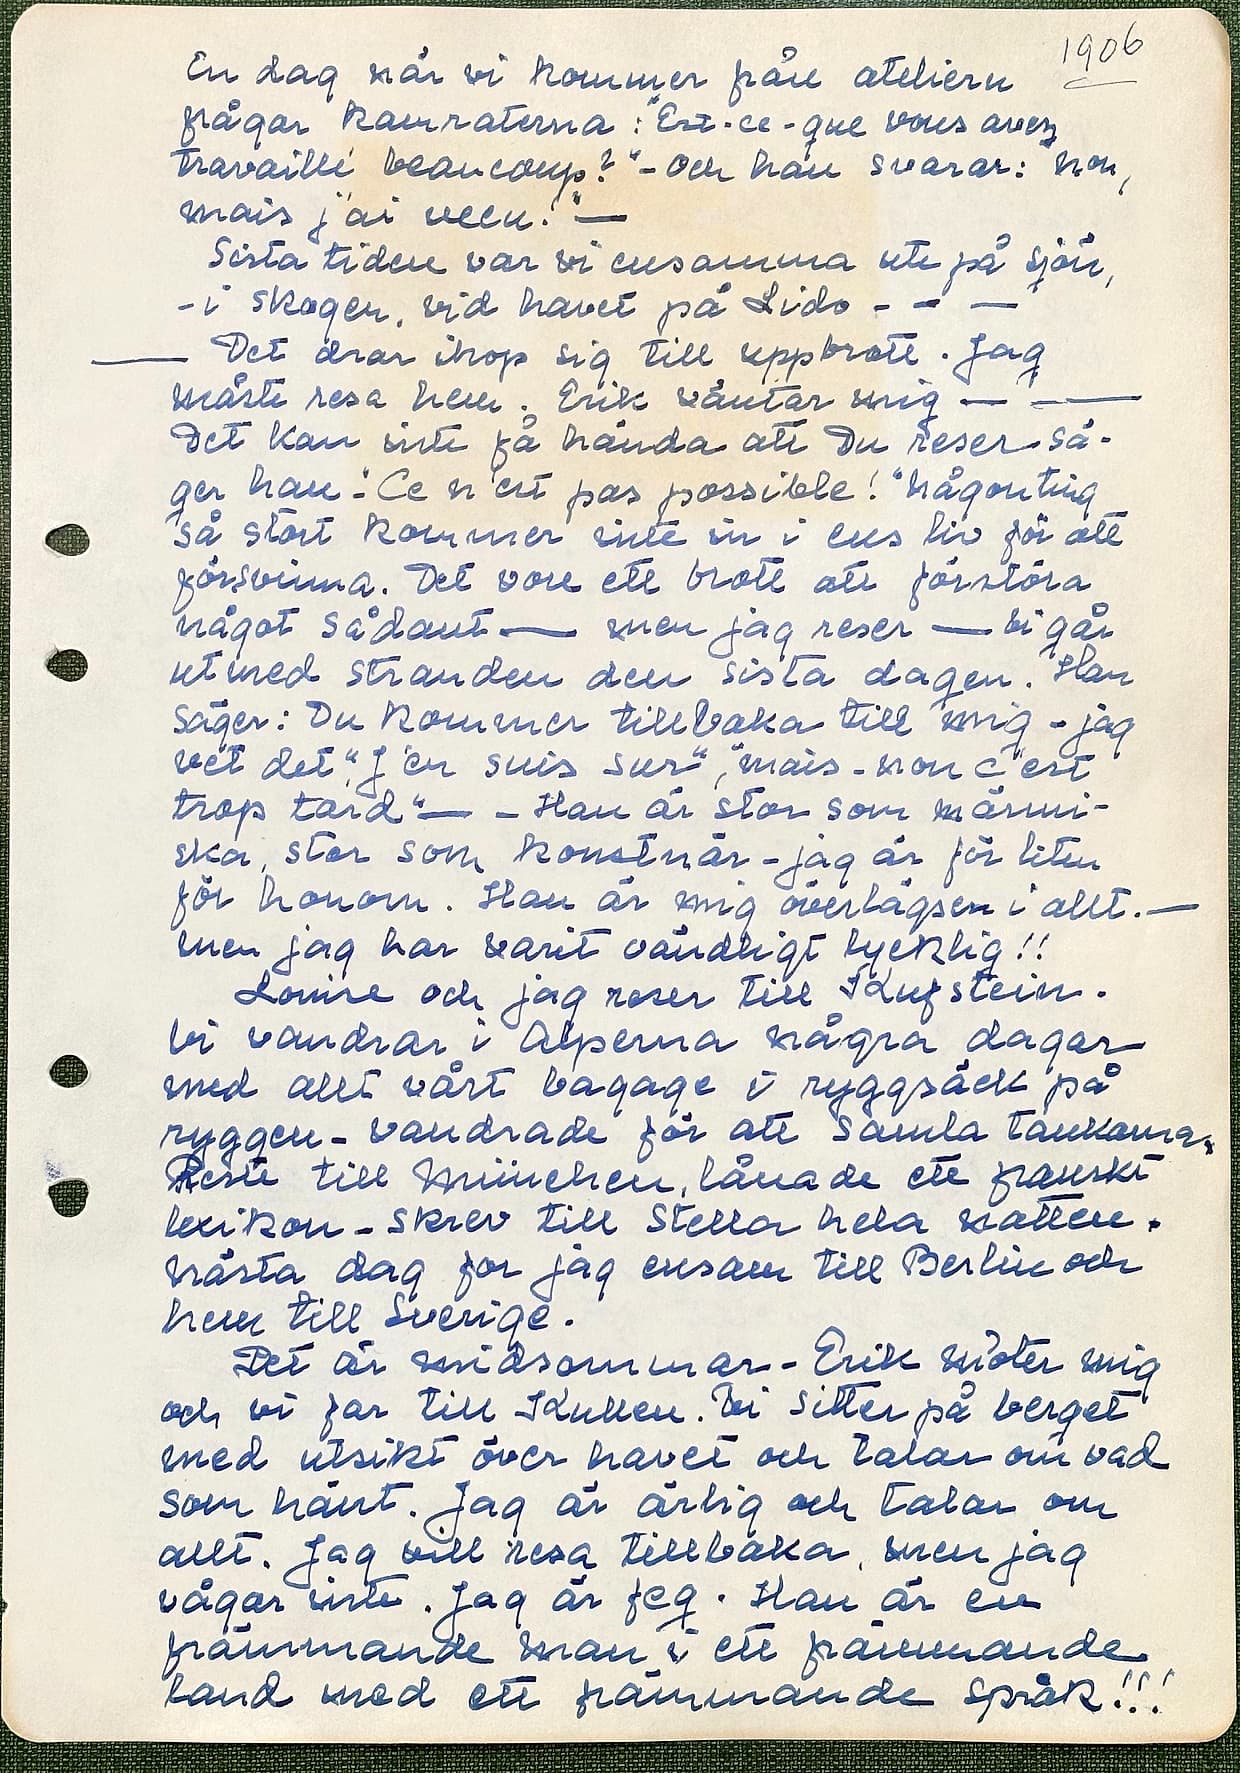 1906
En dag när vi kommer från ateliern
frågar kamraterna: "Est-ce-que vous avez
travaillé beaucoup?" - och han svarar: "non,
mais j'ai vecu." —
Sista tiden var vi ensamma ute på sjön,
- i skogen, vid havet på Lido - - —
— Det drar ihop sig till uppbrott. Jag
måste resa hem. Erik väntar mig — —
Det kan inte få hända att Du reser sä-
ger han - "Ce n'est pas possible!" någonting
så stort kommer inte in i ens liv för att
försvinna. Det vore ett brott att förstöra
något sådant — men jag reser — Vi går
utmed stranden den sista dagen. Han
säger: Du kommer tillbaka till mig - jag
vet det "J'en suis sur", "mais - non c'est
trop tard" — - Han är stor som männi-
ska, stor som konstnär - jag är för liten
för honom. Han är mig överlägsen i allt. —
men jag har varit oändligt lycklig!!
Louise och jag reser till Kufstein.
Vi vandrar i Alperna några dagar
med allt vårt bagage i ryggsäck på
ryggen - vandrade för att samla tankarna.
Reste till München, lånade ett franskt
lexikon - skrev till Stella hela natten.
nästa dag for jag ensam till Berlin och
hem till Sverige.
Det är midsommar - Erik möter mig
och vi far till Kullen. Vi sitter på berget
med utsikt över havet och talar om vad
som hänt. Jag är ärlig och talar om
allt. Jag vill resa tillbaka, men jag
vågar inte. Jag är feg. Han är en
främmande man i ett främmande
land med ett främmande språk!!!